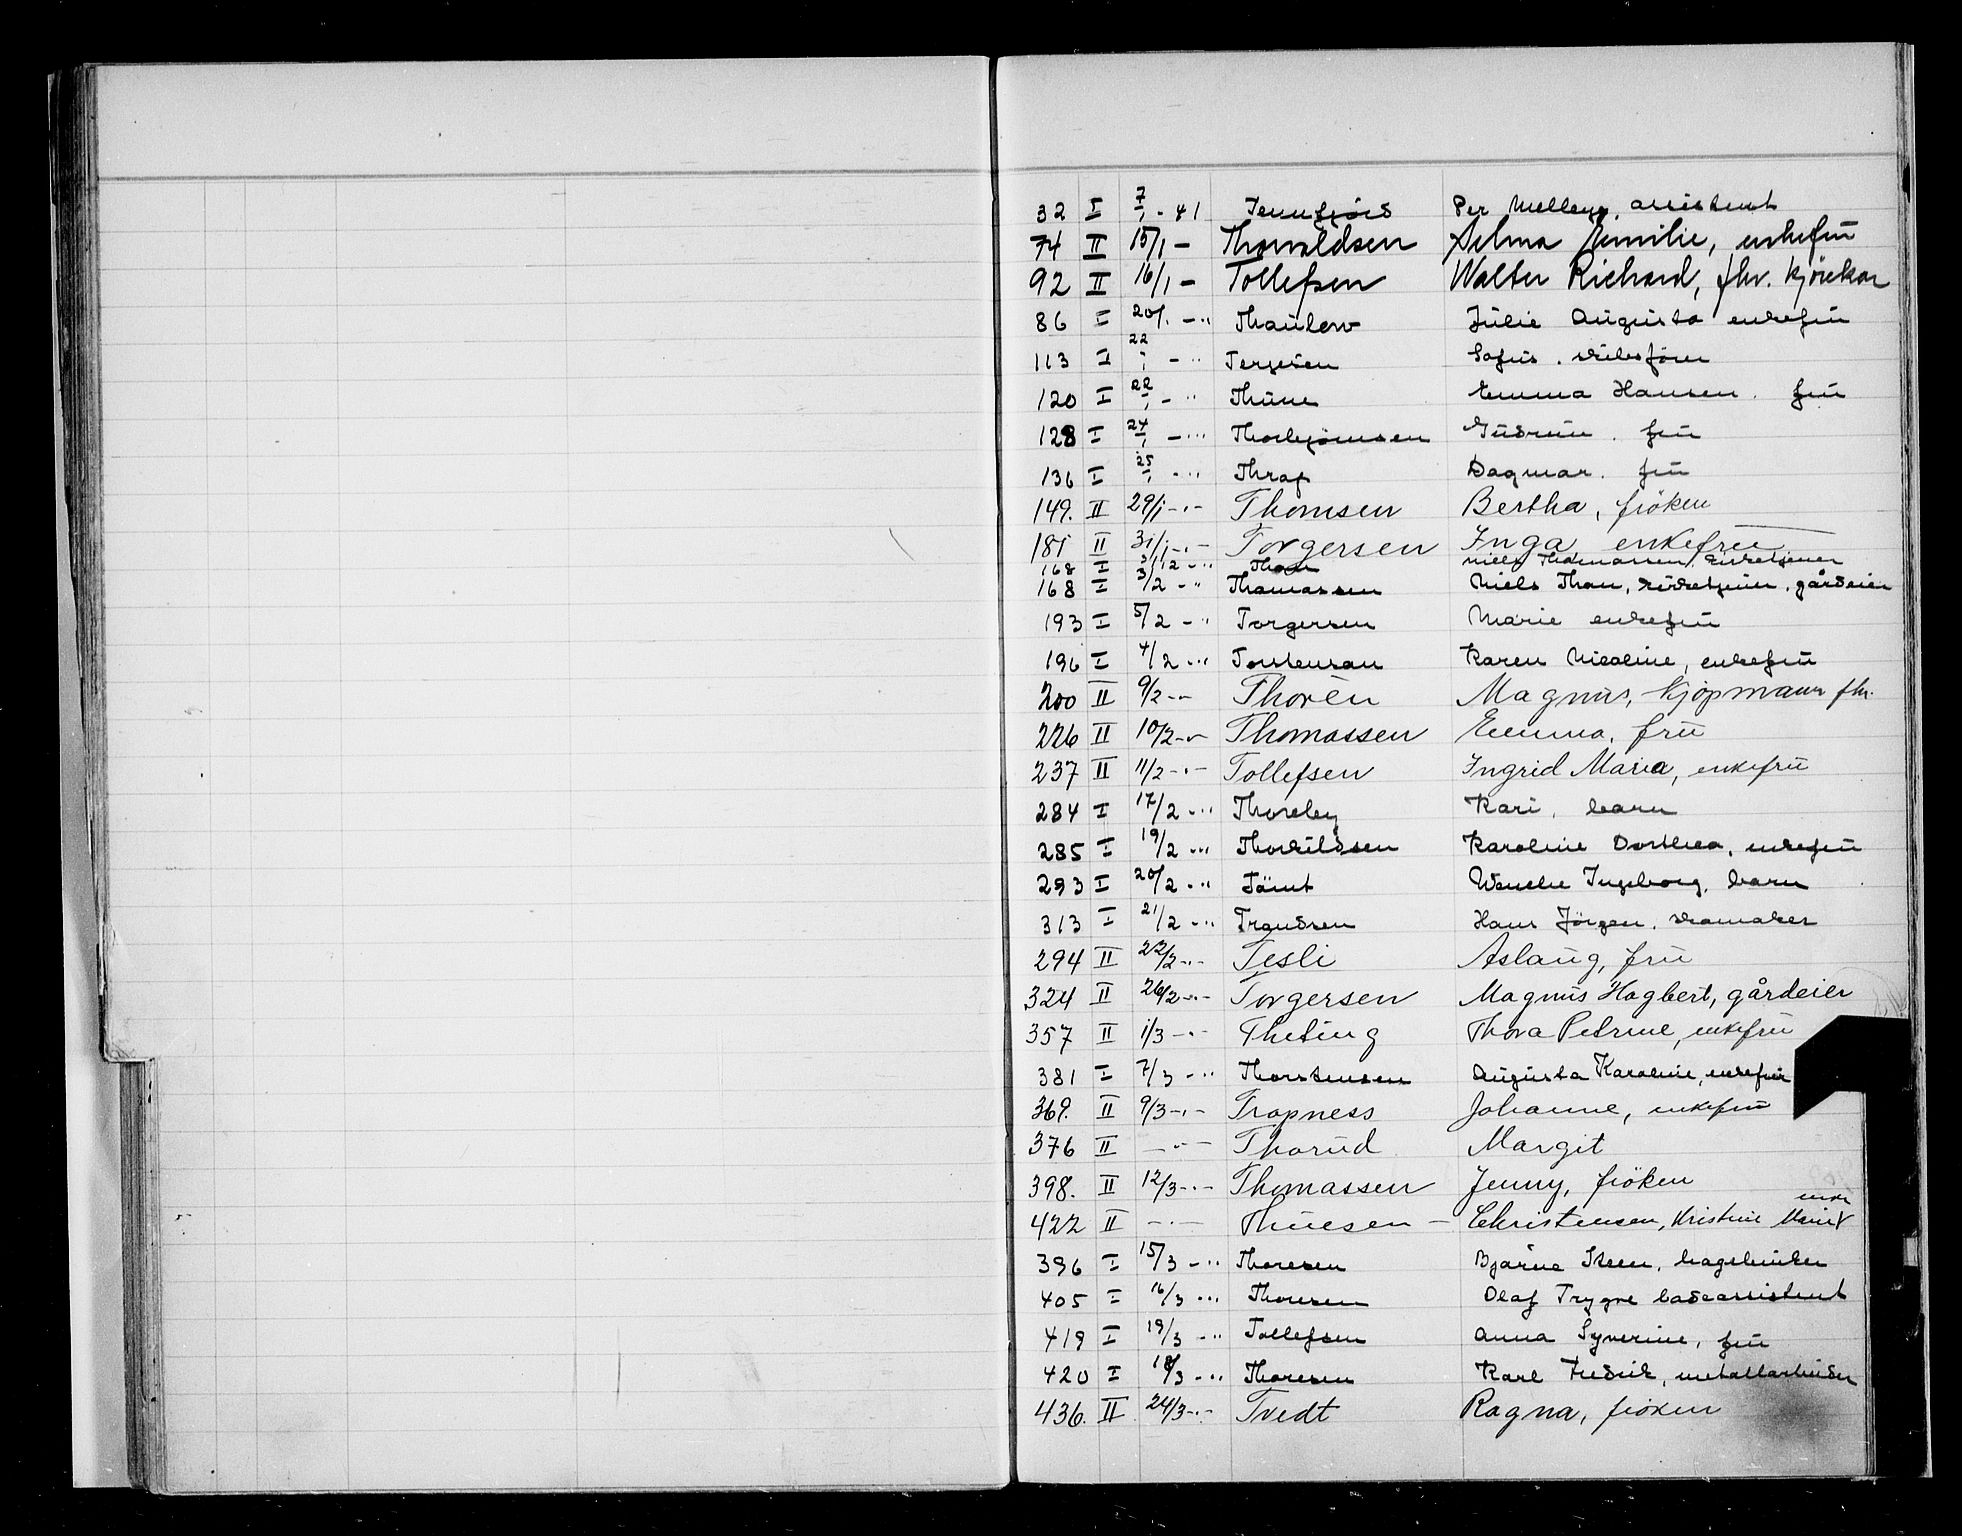 32 I 7/1 - 41 Tennfjörd Per Melleye, assistent
74 II 15/1 - Thorvaldsen Selma Emilie, enkefrü
92 II 16/1 - Tollefsen Walter Richard, fhv. kjörekar
86 I 20/1 - " Thaulow Julie Augusta enkefrü
113 I 22/1 - " Terjesen Sofus. skibsförer
120 I 22/1 - " Thüne Emma Hansen. frü
128 I 24/1 - " Thorbjörnsen Güdrün. frü
136 I 25/1 - " Thrap Dagmar. frü
149. II 29/1 - " - Thomsen Bertha, fröken
181 II 31/1 - " - Torgersen Inga enkefrü
168 I 3/2 - " Than Niels Thomassen, kirketjener
168 I 3/2 - " Thomassen Niels Than, kirketjener, gårdeier
193 I 5/2 - " Torgersen Marie enkefrü
196 I 4/2 - " Torstensan Karen Nicoline, enkefrü
200 II 9/2 - " - Thorèn Magnus, kjöpmann fhv.
226 II 10/2 - " - Thomassen Emma, frü
237 II 11/2 - " - Tollefsen Ingrid Maria, enkefrü
284 I 17/2 - " Thoreby Kari, barn
285 I 19/2 - " Thorkildsen Karoline Dorthea, enkefrü
293 I 20/2 - " Tömt Wenche Ingeborg, barn
313 I 21/2 - " Trondsen Hans Jörgen. skomaker
294 II 22/2 - " - Tesli Aslaüg, frü
324 II 26/2 - " - Torgersen Magnüs Hagbert, gårdeier
357 II 1/3 - " - Theting Thora Petrine, enkefrü
381 I 7/3 - " Thorstensen Augusta Karoline, enkefrü
369. II 9/3 - " - Trapness Johanne, enkefrü
376 II - " - Thorüd Margit
398. II 12/3 - " - Thomassen Jenny, fröken
422 II - " - Thüesen - Christensen, Kristine Marie
396 I 15/3 - " Thoresen Bjarne Steen, hagebruker
405 I 16/3 - " Thoresen Olaf Trygve ladeassistent
419 I 19/3 - " Tollefsen Anna Syverine, frü
420 I 18/3 - " Thoresen Karl Fredrik, metallarbeider
436. II 24/3 - " - Tvedt Ragna, fröken